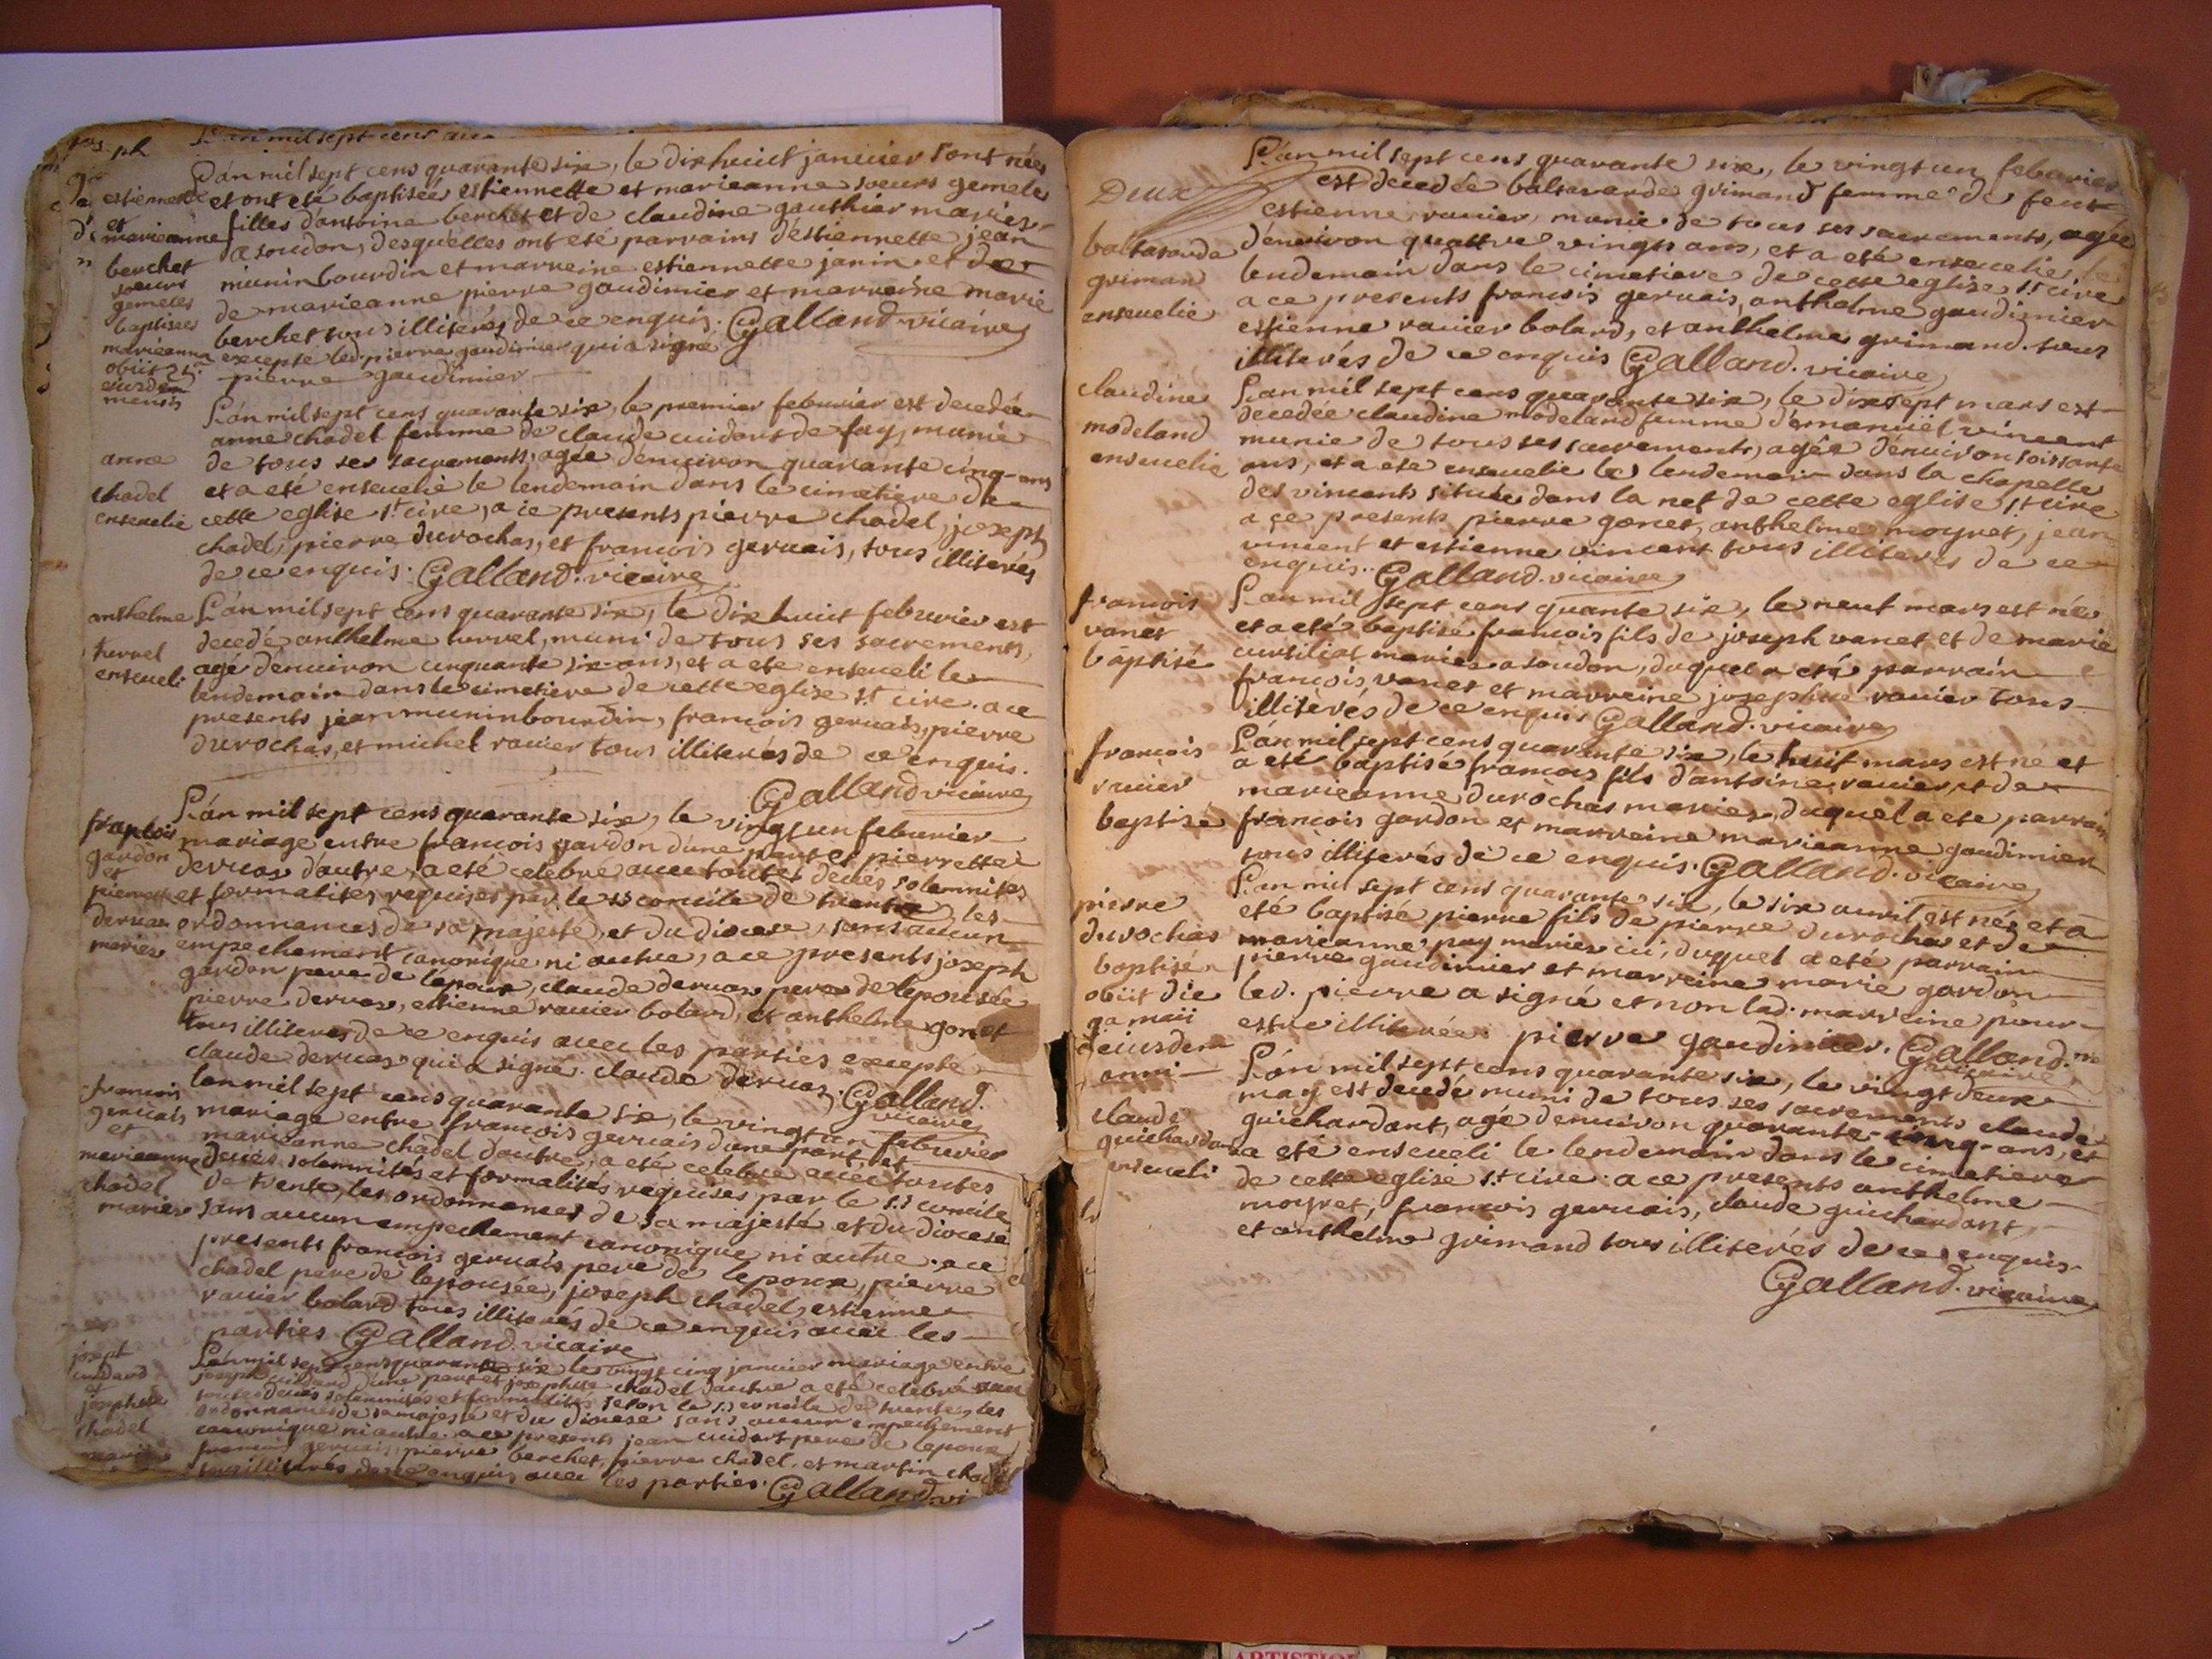 L'an mil sept cens
L'an mil sept cens quarante six, le dixhuict janvier sont nées
estiennette et ont eté baptisées estiennette et marieanne soeurs gemeles
et
marieanne filles d'antoine berchet et de claudine gauthier mariés
berchet a soudon, desquelles ont eté parrains d'estiennette jean
soeurs muninbourdin et marreine estiennette janin et de
gemeles de marieanne pierre gaudimier et marreine marie
baptisées berchet tous illiterés de ce enquis. Galland vicaire
marieanne excepte led. pierre gaudimier qui a signé
obiit 21.a pierre gaudimier
eiusdem
mensis
L'an mil sept cens quarante six, le premier febvrier est decedée
anne chadel femme de claude cuidard de fay, munie
anne de tous ses sacrements, agée d'environ quarante cinq ans
chadel et a eté ensevelie le lendemain dans le cimetiere de
ensevelie cette eglise st cire, a ce presents pierre chadel, joseph
chadel, pierre durochas, et francois gervais, tous illiterés
de ce enquis. Galland. vicaire
anthelme L'an mil sept cens quarante six, le dixhuit febvrier est
decedé anthelme turrel, muni de tous ses sacrements,
turrel agé d'environ cinquante six ans, et a eté enseveli le
enseveli lendemain dans le cimetiere de cette eglise st cire. a ce
presents jean muninbourdin, francois gervais, pierre
durochas, et michel ravier tous illiterés de ce enquis.
Galland vicaire
L'an mil sept cens quarante six, le vingtun febvrier
francois mariage entre francois gardon d'une part et pierrette
gardon dervas d'autre, a eté celebré avec toutes deües solemnités
et
pierrette et formalités requises par le st concile de trente, les
dervas ordonnances de sa majesté, et du diocese, sans aucun
mariés empechement canonique ni autre, a ce presents joseph
gardon pere de l'epoux, claude dervas pere de l'epousée
pierre dervas, estienne ravier bolard, et anthelme gonet
tous illiteres de ce enquis avec les parties excepté
claude dervas qui a signé. claude dervas. Galland.
vicaire
francois l'an mil sept cens quarante six, le vingtun febvrier
gervais mariage entre francois gervais d'une part, et
et marieanne chadel d'autre, a eté celebré avec toutes
marieanne deües solemnités et formalités requises par le st concile
chadel de trente, les ordonnances de sa majesté et du diocese
mariés sans aucun empechement canonique ni autre. a ce
presents francois gervais pere de l'epoux, pierre
chadel pere de l'epousée, joseph chadel, estienne
ravier bolard tous illiterés de ce enquis avec les
parties Galland vicaire
joseph L'an mil sept cens quarante six le vingt cinq janvier mariage entre
cuidard joseph cuidard d'une part et josephte chadel d'autre a eté celebré avec
et toutes deües solemnités et formalités selon le st concile de trente, les
josephte ordonnances de sa majesté et du diocese sans aucun empechement
chadel canonique ni autre. a ce presents jean cuidart pere de l'epoux
mariés francois gervais, pierre berchet, pierre chadel. et martin chadel
tous illiterés de ce enquis avec les parties. Galland vi
Deux
L'an mil sept cens quarante six, le vingtun febvrier
est decedée baltasarde grimand femme de feu
estienne ravier, munie de tous ses sacrements, agée
baltasarde d'environ quattre vingts ans, et a eté ensevelie le
griman lendemain dans le cimetiere de cette eglise st cire
ensevelie a ce presents francois gervais, anthelme gaudimier
estienne ravier bolard, et anthelme grimand. tous
illiterés de ce enquis Galland. vicaire
claudine L'an mil sept cens quarante six, le dixsept mars est
modeland decedée claudine modeland femme d'emanuel vincent
ensevelie munie de tous ses sacrements, agée d'environ soissante
ans, et a eté ensevelie le lendemain dans la chapelle
des vincents située dans la nef de cette eglise st cire
a ce presents pierre gonet, anthelme moyret, jean
vincent et estienne vincent tous illiterés de ce
enquis.. Galland. vicaire
francois L'an mil sept cens quante six, le neuf mars est né
vanet et a eté baptisé francois fils de joseph vanet et de marie
baptisé cursiliat mariés a soudon, duquel a eté parrain
francois vanet et marreine josephte ravier tous
illiterés de ce enquis Galland. vicaire
francois L'an mil sept cens quarante six, le huit mars est né et
ravier a eté baptisé francois fils d'antoine ravier et de
marieanne durochas mariés, duquel a eté parrain
baptisé francois gardon et marreine marieanne gaudimier
tous illiterés de ce enquis. Galland. vicaire
pierre L'an mil sept cens quarante six, le six avril est né et a
durochas eté baptisé pierre fils de pierre durochas et de
marieanne puy mariés ici, duquel a eté parrain
baptisé pierre gaudimier et marreine marie gardon
obiit die led. pierre a signé et non lad. marreine pour
9a maii estre illiterée. pierre gaudimier. Galland.
eiusdem vicaire
anni L'an mil sept cens quarante six, le vingt deux
may est decedé muni de tous ses sacrements claude
claude guichardant, agé d'environ quarante cinq ans, et
guichardant a eté enseveli le lendemain dans le cimetiere
enseveli de cette eglise st cire. a ce presents anthelme
moyret, francois gervais, claude guichardant,
et anthelme grimand tous illiterés de ce enquis.
Galland. vicaire